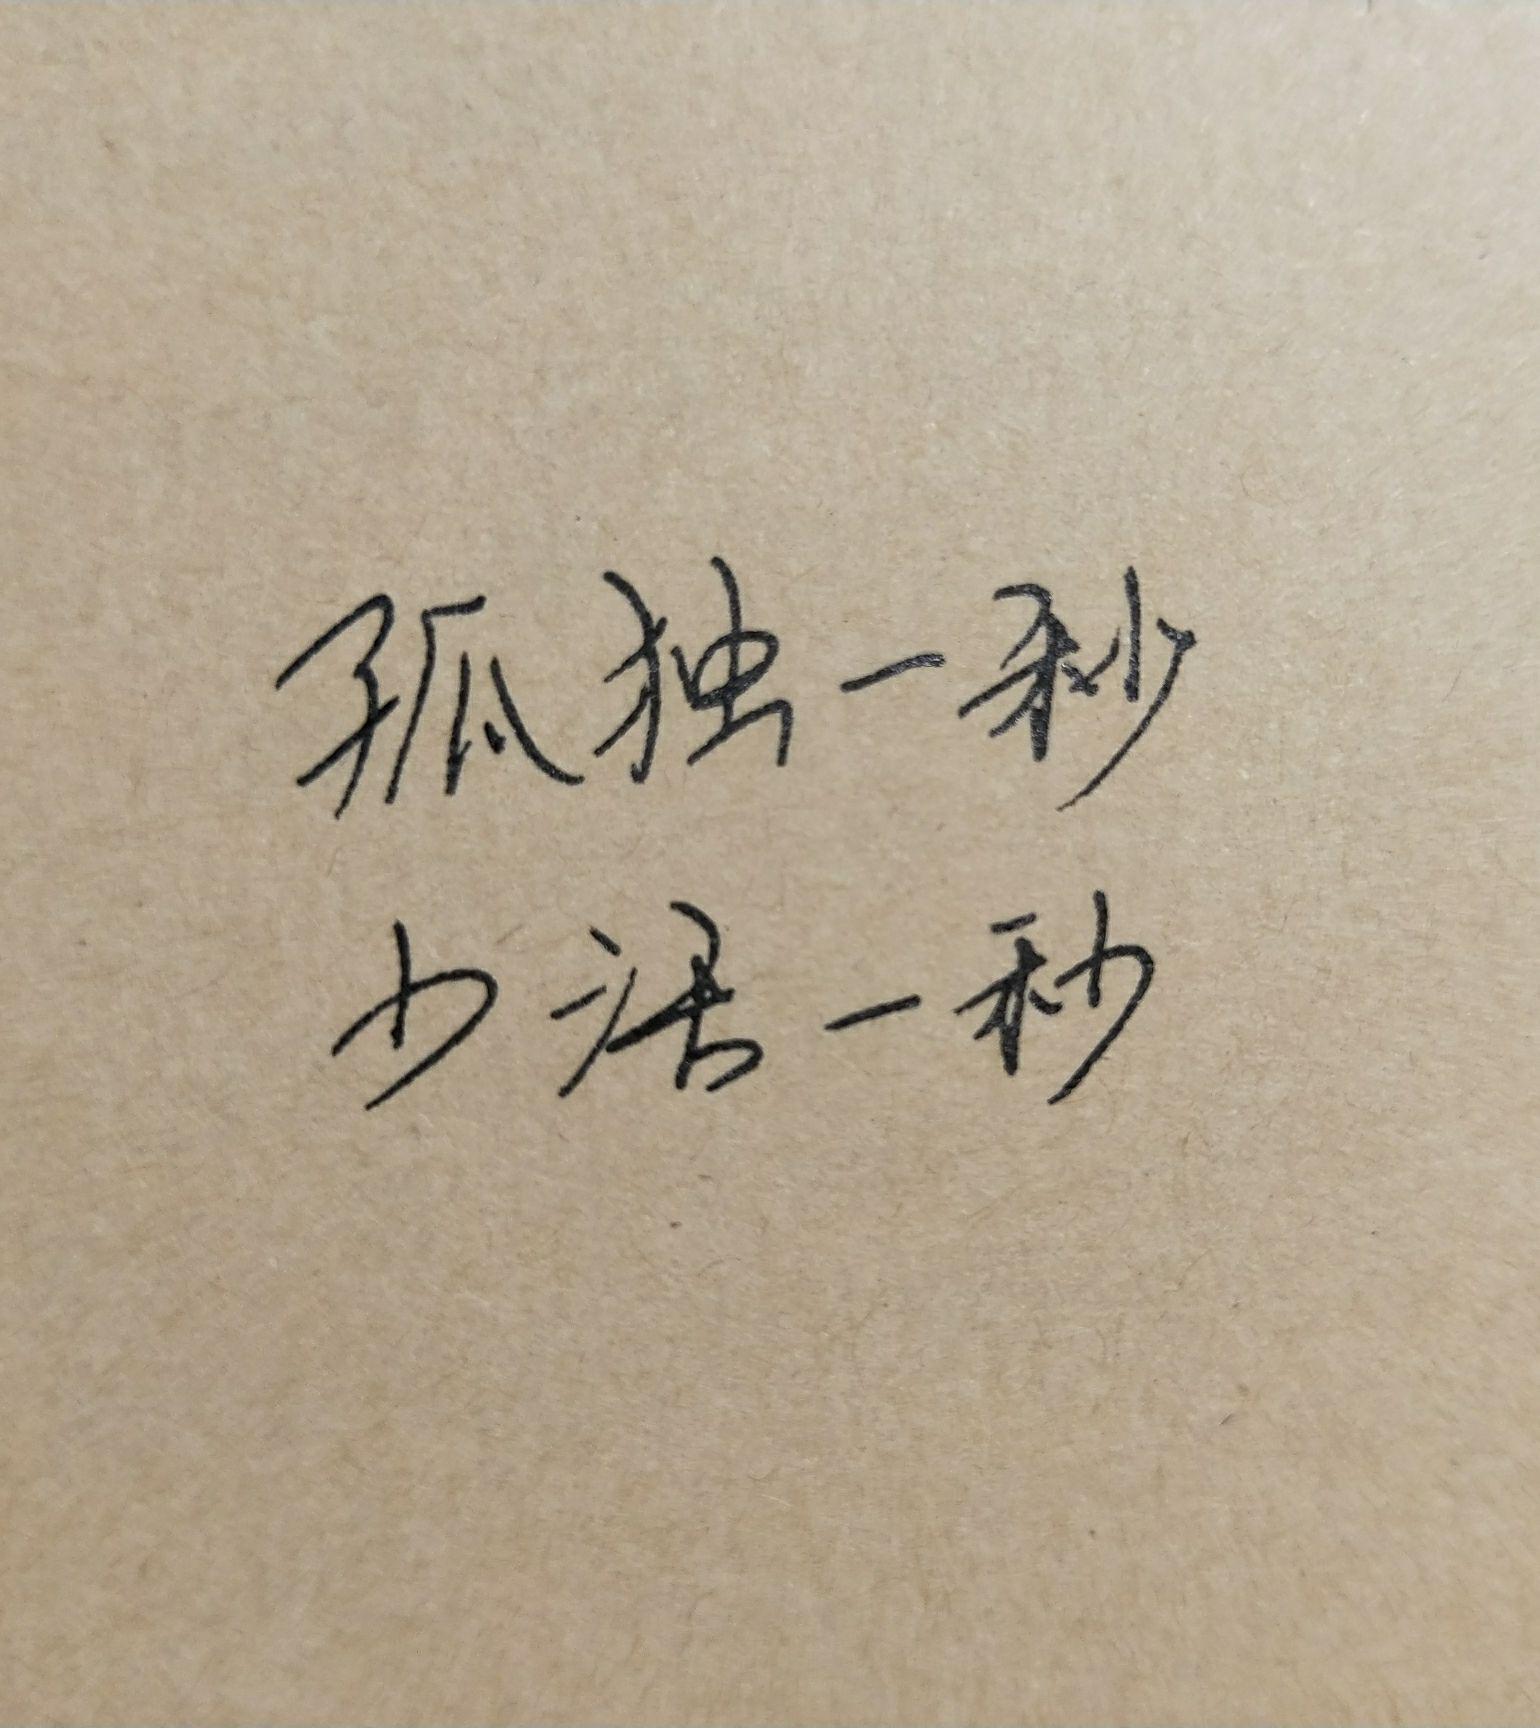 孤独一秒
少活一秒